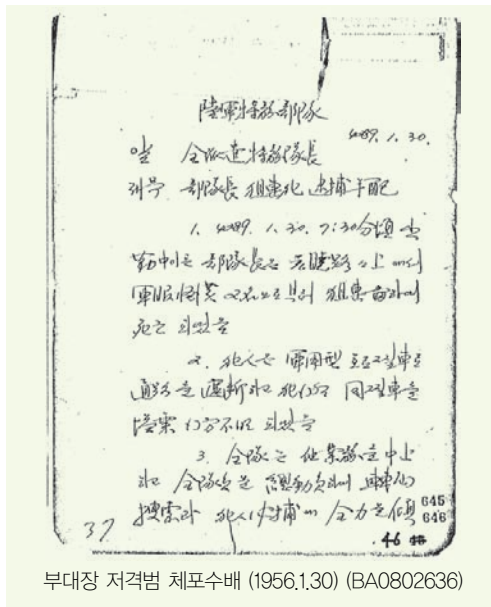 陸軍特務部隊
4289. 1. 30.
앞 全隊連特務隊長
제목 部隊長 狙擊犯 逮捕手配
1. 4289. 1. 30. 7:30分頃 出
勤中이든 部隊長은 上에서
軍服怪漢 으로부터 狙擊當하여
死亡 되었음
2. 犯人은 軍用型
을 遮斷하고 犯行後 同 車를
搭乘 行方不明 되었음
3. 全隊는 他業務를 中止
하고 全隊員을 總動員하여
搜索과 犯人 逮捕에 全力을 傾
645
646
37
46
부대장 저격범 체포수배 (1956.1.30) (BA0802636)